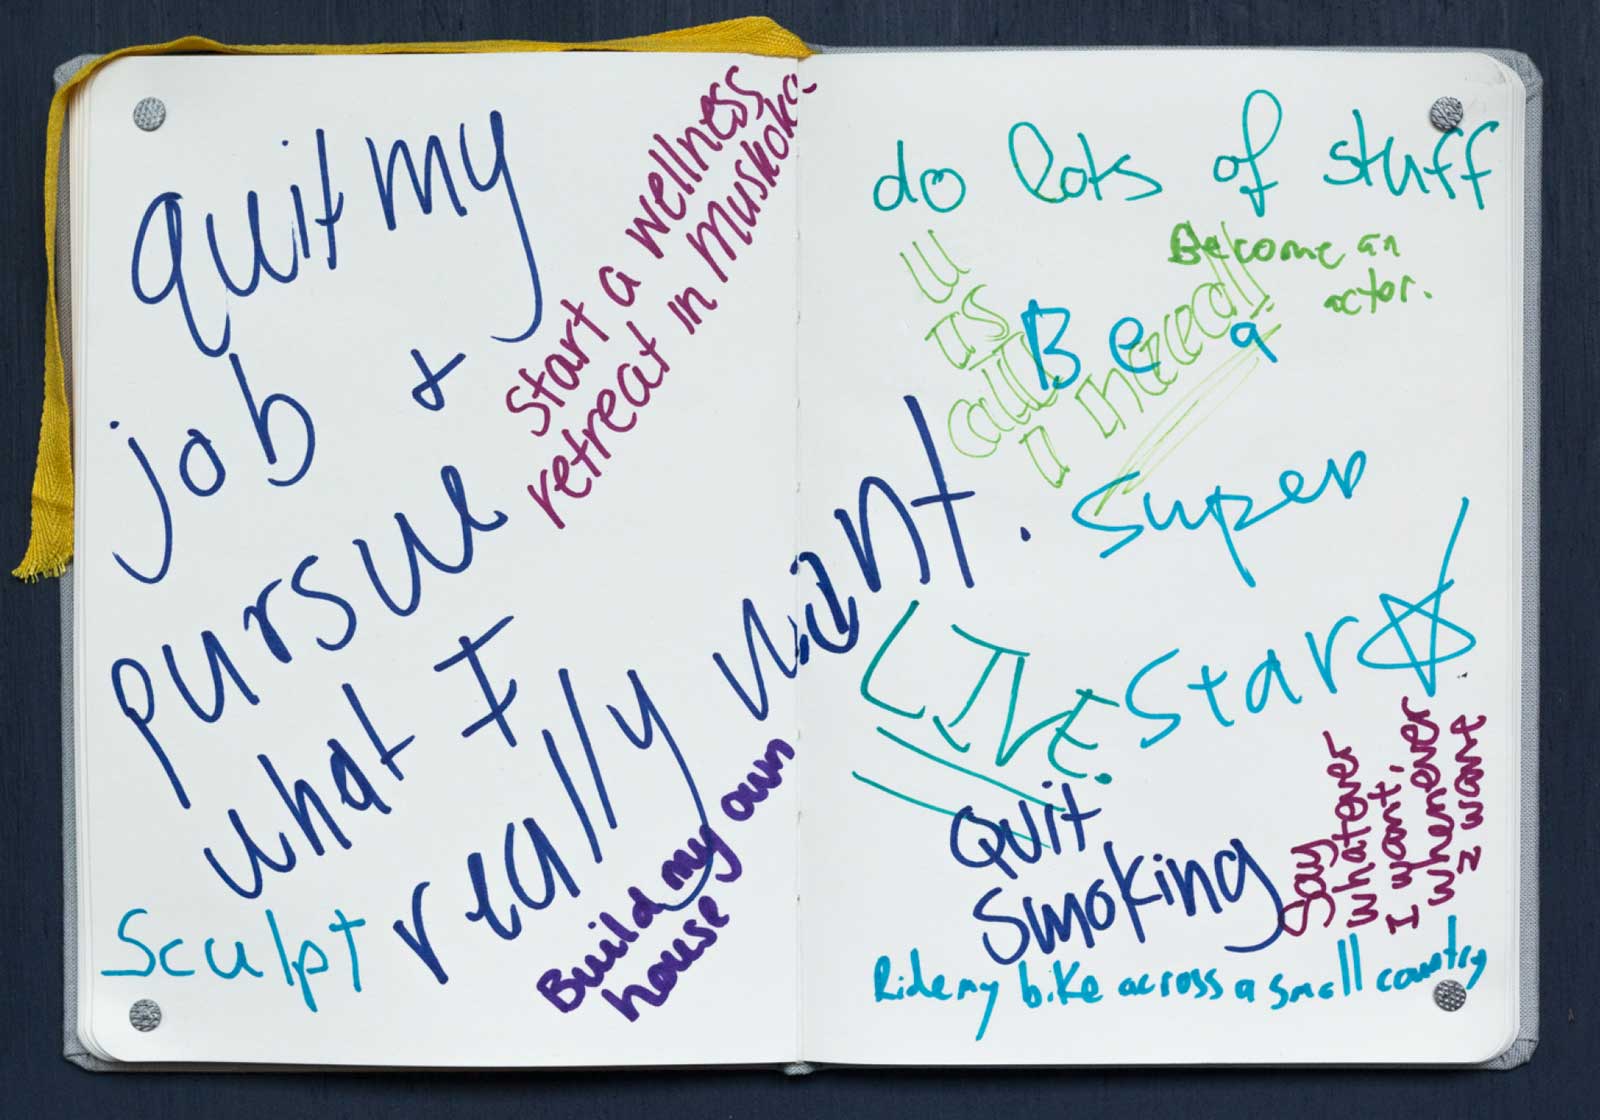 quit my
job +
pursue
what I
really want.
Start a wellness
retreat in Muskoka
Sculpt
Build my own
house
do lots of stuff
Become an
actor.
Be a
Super
Star
LIVE.
Quit
Smoking
Say
whatever
I want,
whenever
I want
Ride my bike across a small country